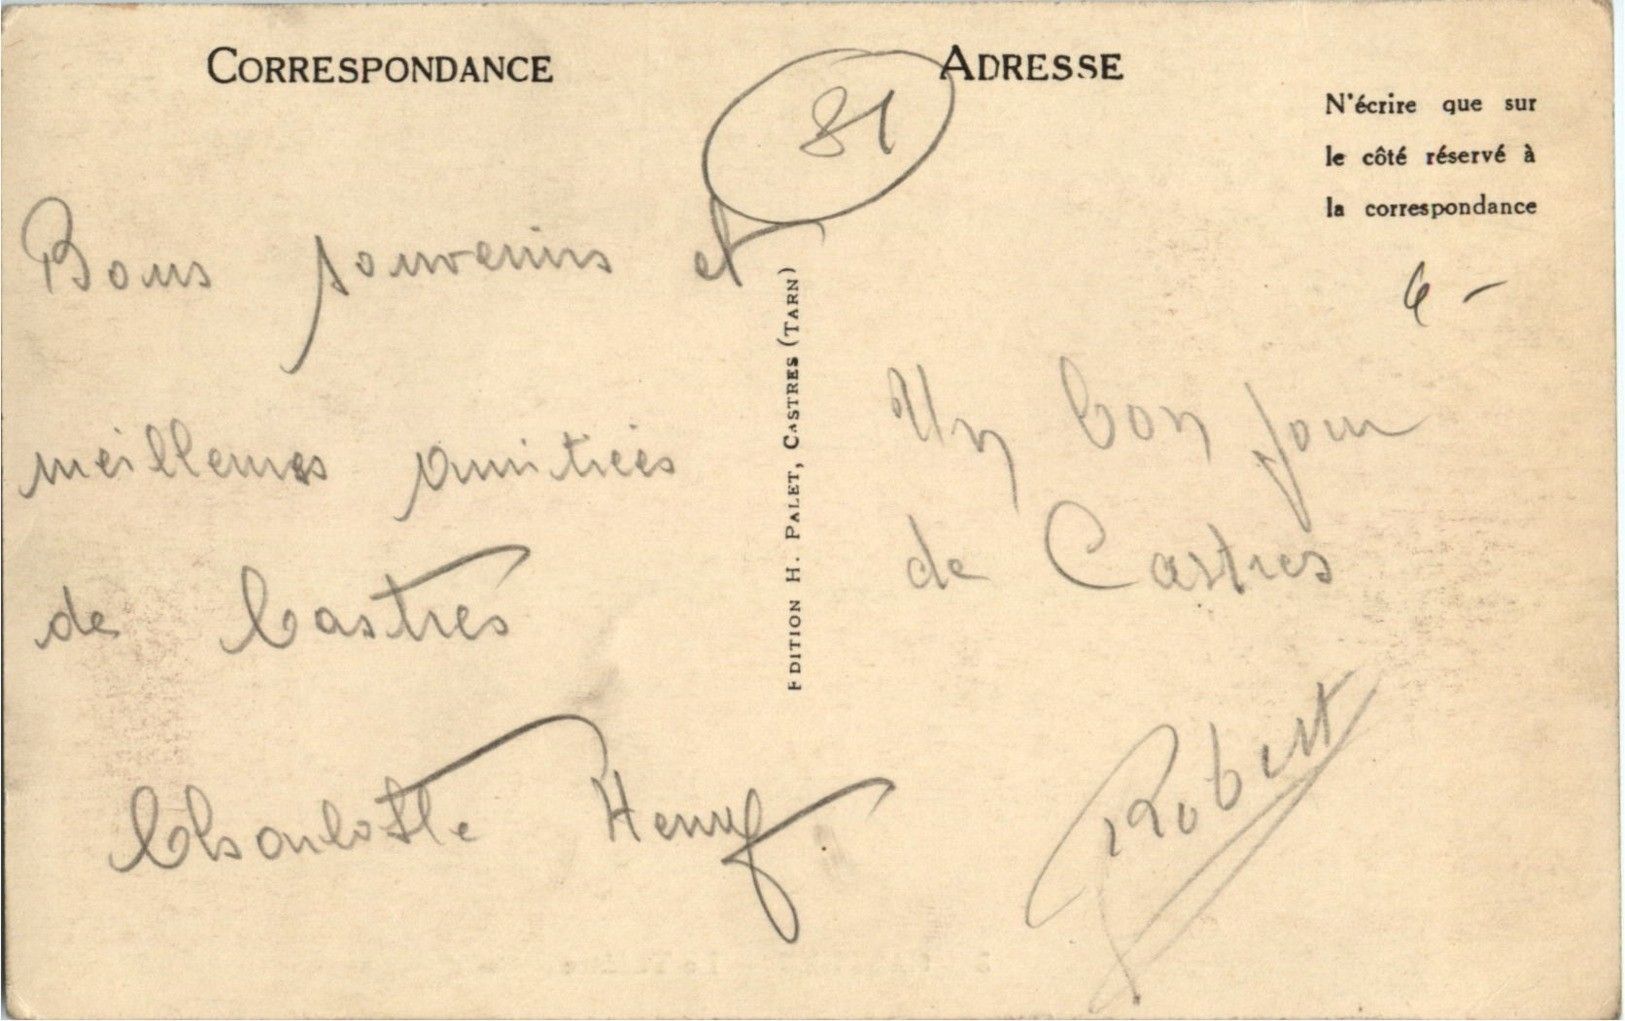 CORRESPONDANCE
Bons souvenirs et
meilleures amitiés
de Castres
Charlotte Henry
EDITION H. PALET, CASTRES (TARN)
81
ADRESSE
N'écrire que sur
le côté réservé à
la correspondance
6 -
Un bon jour
de Castres
Robert